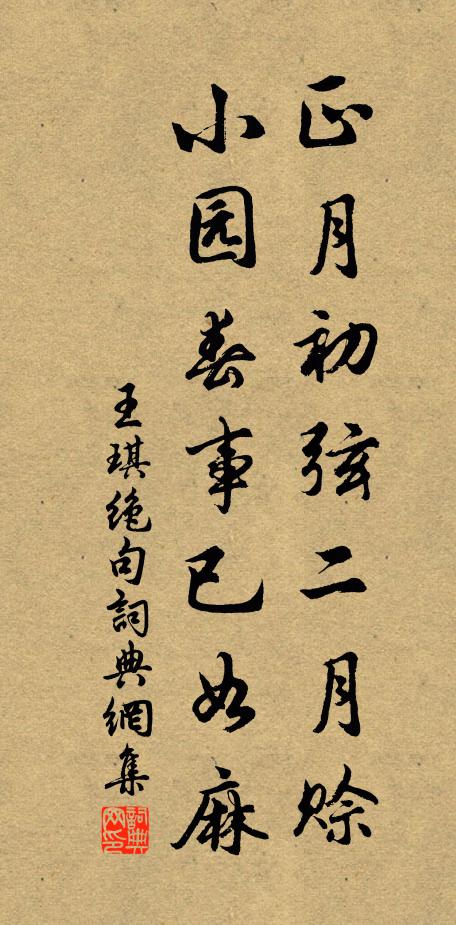 正月初弦二月赊
小园春事已如麻
王琪绝句詞典網集
詞典網印